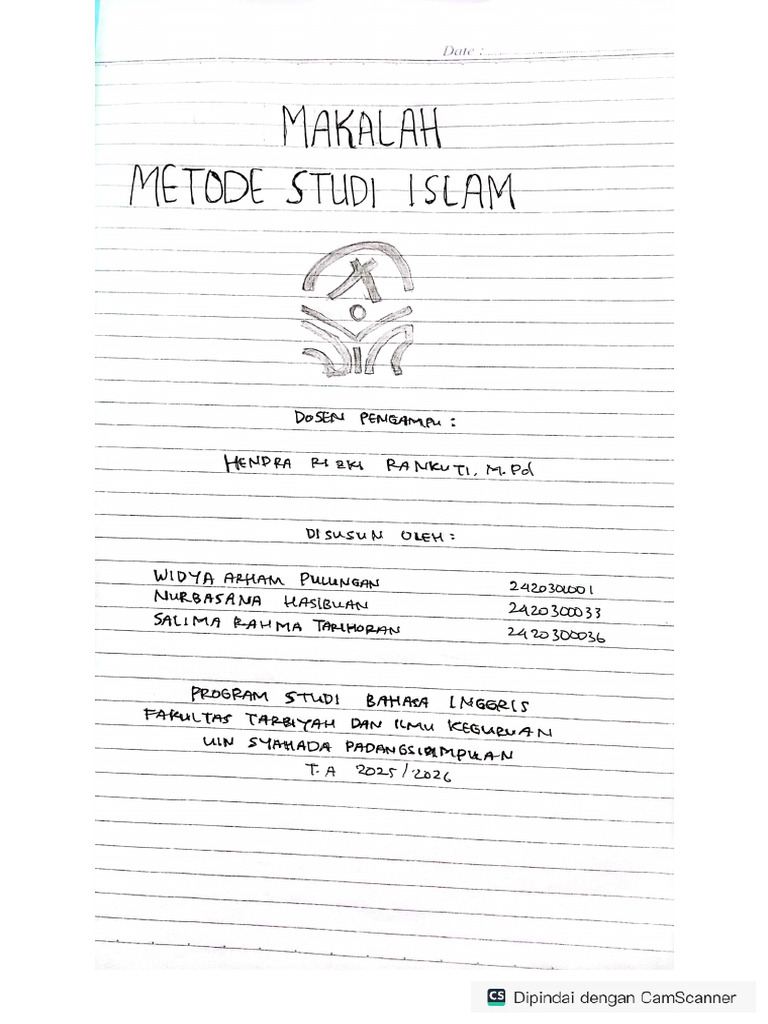 Date :
MAKALAH
METODE STUDI ISLAM
DOSEN PENGAMPU :
HENDRA RIZKI RANKUTI, M.Pd
DISUSUN OLEH :
WIDYA ARHAM PULUNGAN 2420300001
NURBASANA HASIBUAN 2420300033
SALIMA RAHMA TARIHORAN 2420300036
PROGRAM STUDI BAHASA INGGRIS
FAKULTAS TARBIYAH DAN ILMU KEGURUAN
UIN SYAHADA PADANGSIDIMPUAN
T.A 2025/2026
CS Dipindai dengan CamScanner